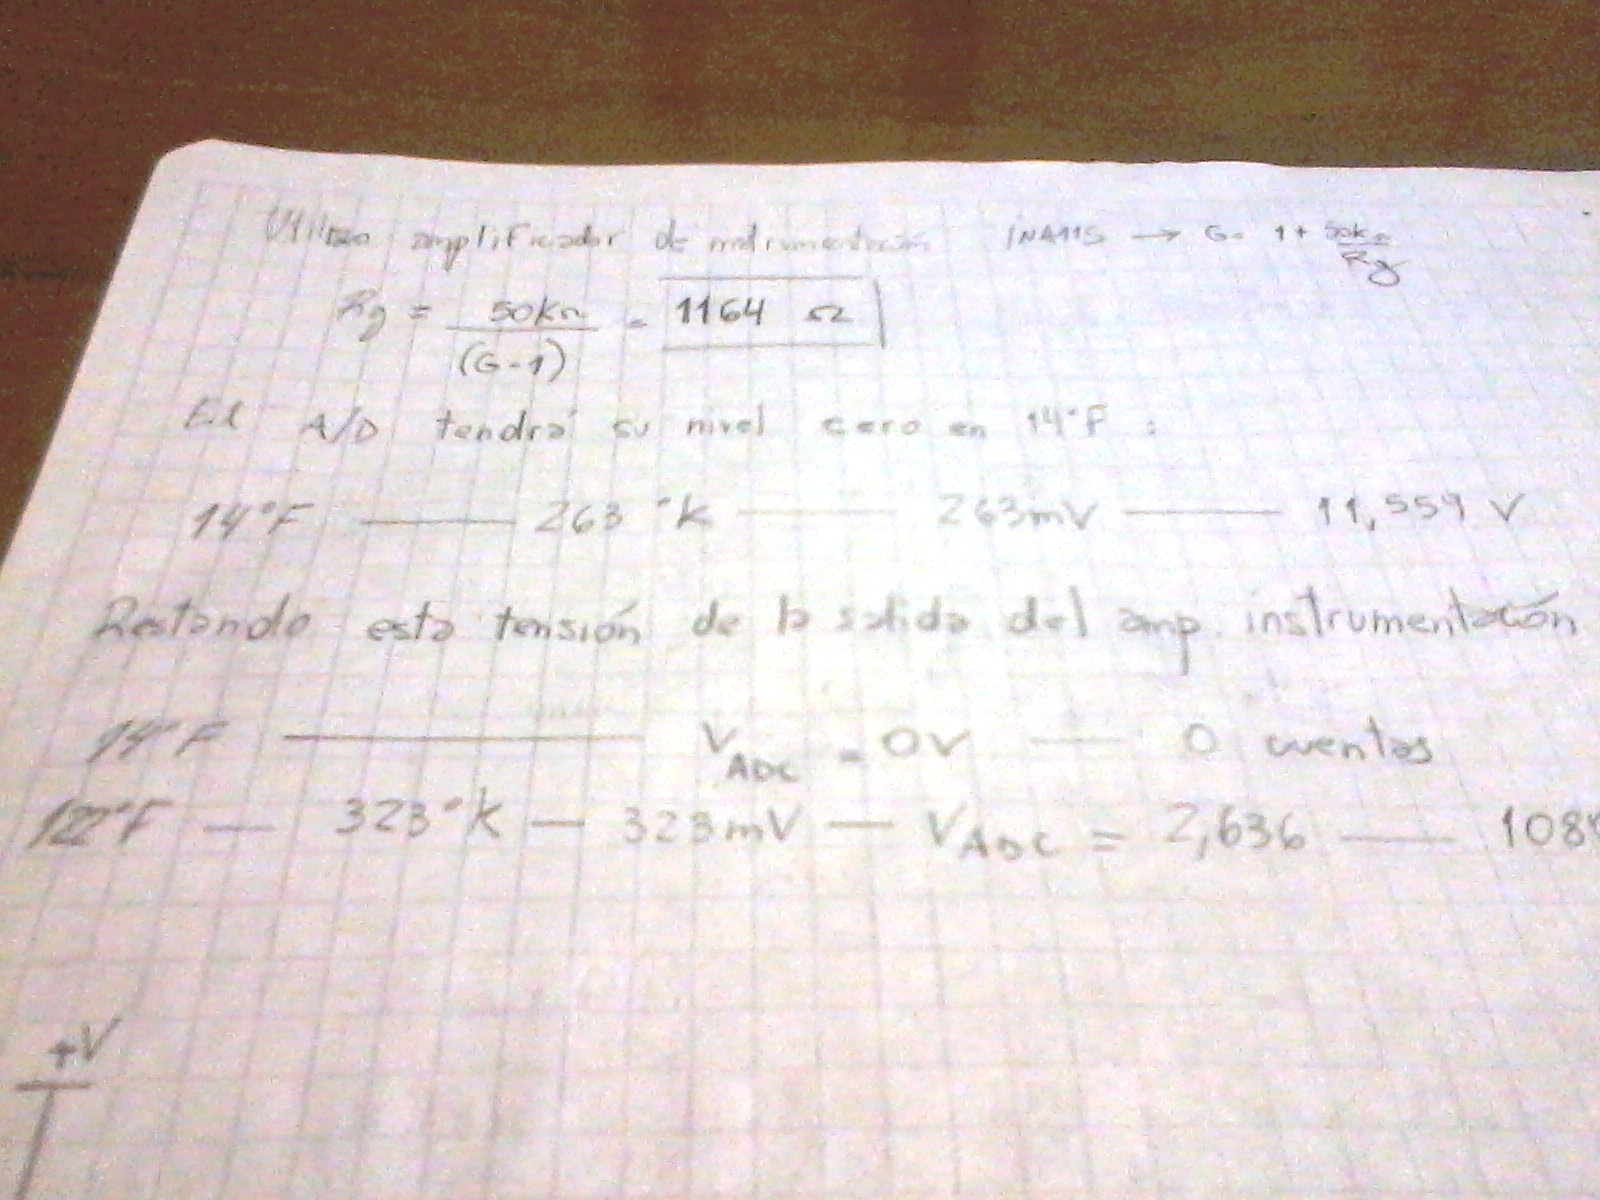 Utilizo amplificador de instrumentación INA115 → G = 1 + 50kΩ/Rg
Rg = 50kΩ/(G-1) = 1164 Ω
El A/D tendrá su nivel cero en 14°F :
14°F — 263 °K — 263mV — 11,559 V
Restando esta tensión de la salida del amp. instrumentación
14°F — VADC = 0V — 0 cuentas
122°F — 323°K — 323mV — VADC = 2,636 —
+V